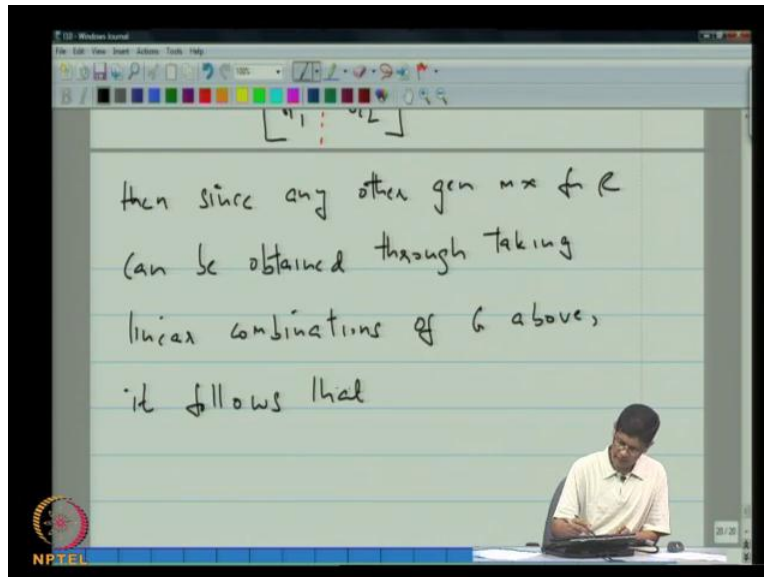 L10 - Windows Journal
File Edit View Insert Actions Tools Help
then since any other gen mx for C
can be obtained through taking
linear combinations of G above,
it follows that
20/20
NPTEL